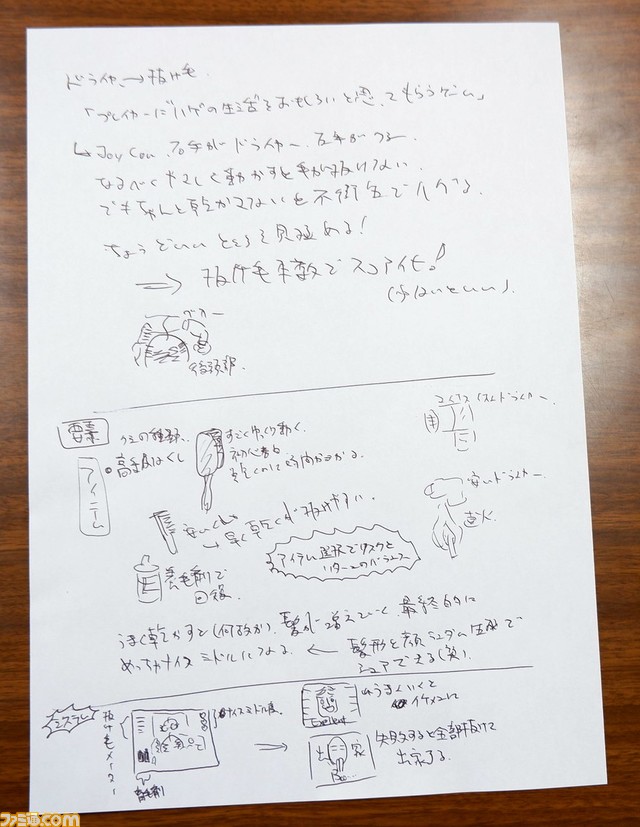 ドライヤー→抜け毛
「プレイヤーに"ハゲの生活"をおもしろいと思ってもらうゲーム」
↳ Joy Con 右手がドライヤー、左手がクシ
なるべくやさしく動かすと毛が抜けない
でもちゃんと乾かさないと不衛生でハゲる
ちょうどいいところを見極める!
⇒ 抜け毛本数でスコアアイ化!
(少ないといい)
後頭部
要素
アイテム
クシの種類、
・高級はくし
すごくゆっくり動く
初心者用
乾くのに時間がかかる
安いくし
→早く乾くが抜けやすい
養毛剤で
回復
マイナスイオンドライヤー
安いドライヤー
直火
アイテム選択でリスクと
リターンのバランス
うまく乾かすと(何故か)、髪が増えていく、最終的に
めっちゃナイスミドルになる ← 髪形と顔ランダム生成で
シェアできる(笑)
抜け毛メーター
ナイスミドル度
養毛剤
⇒
Excellent
うまくいくと
イケメンに
出家
Boo...
失敗すると全部抜けて
出家する
ファミ通.com